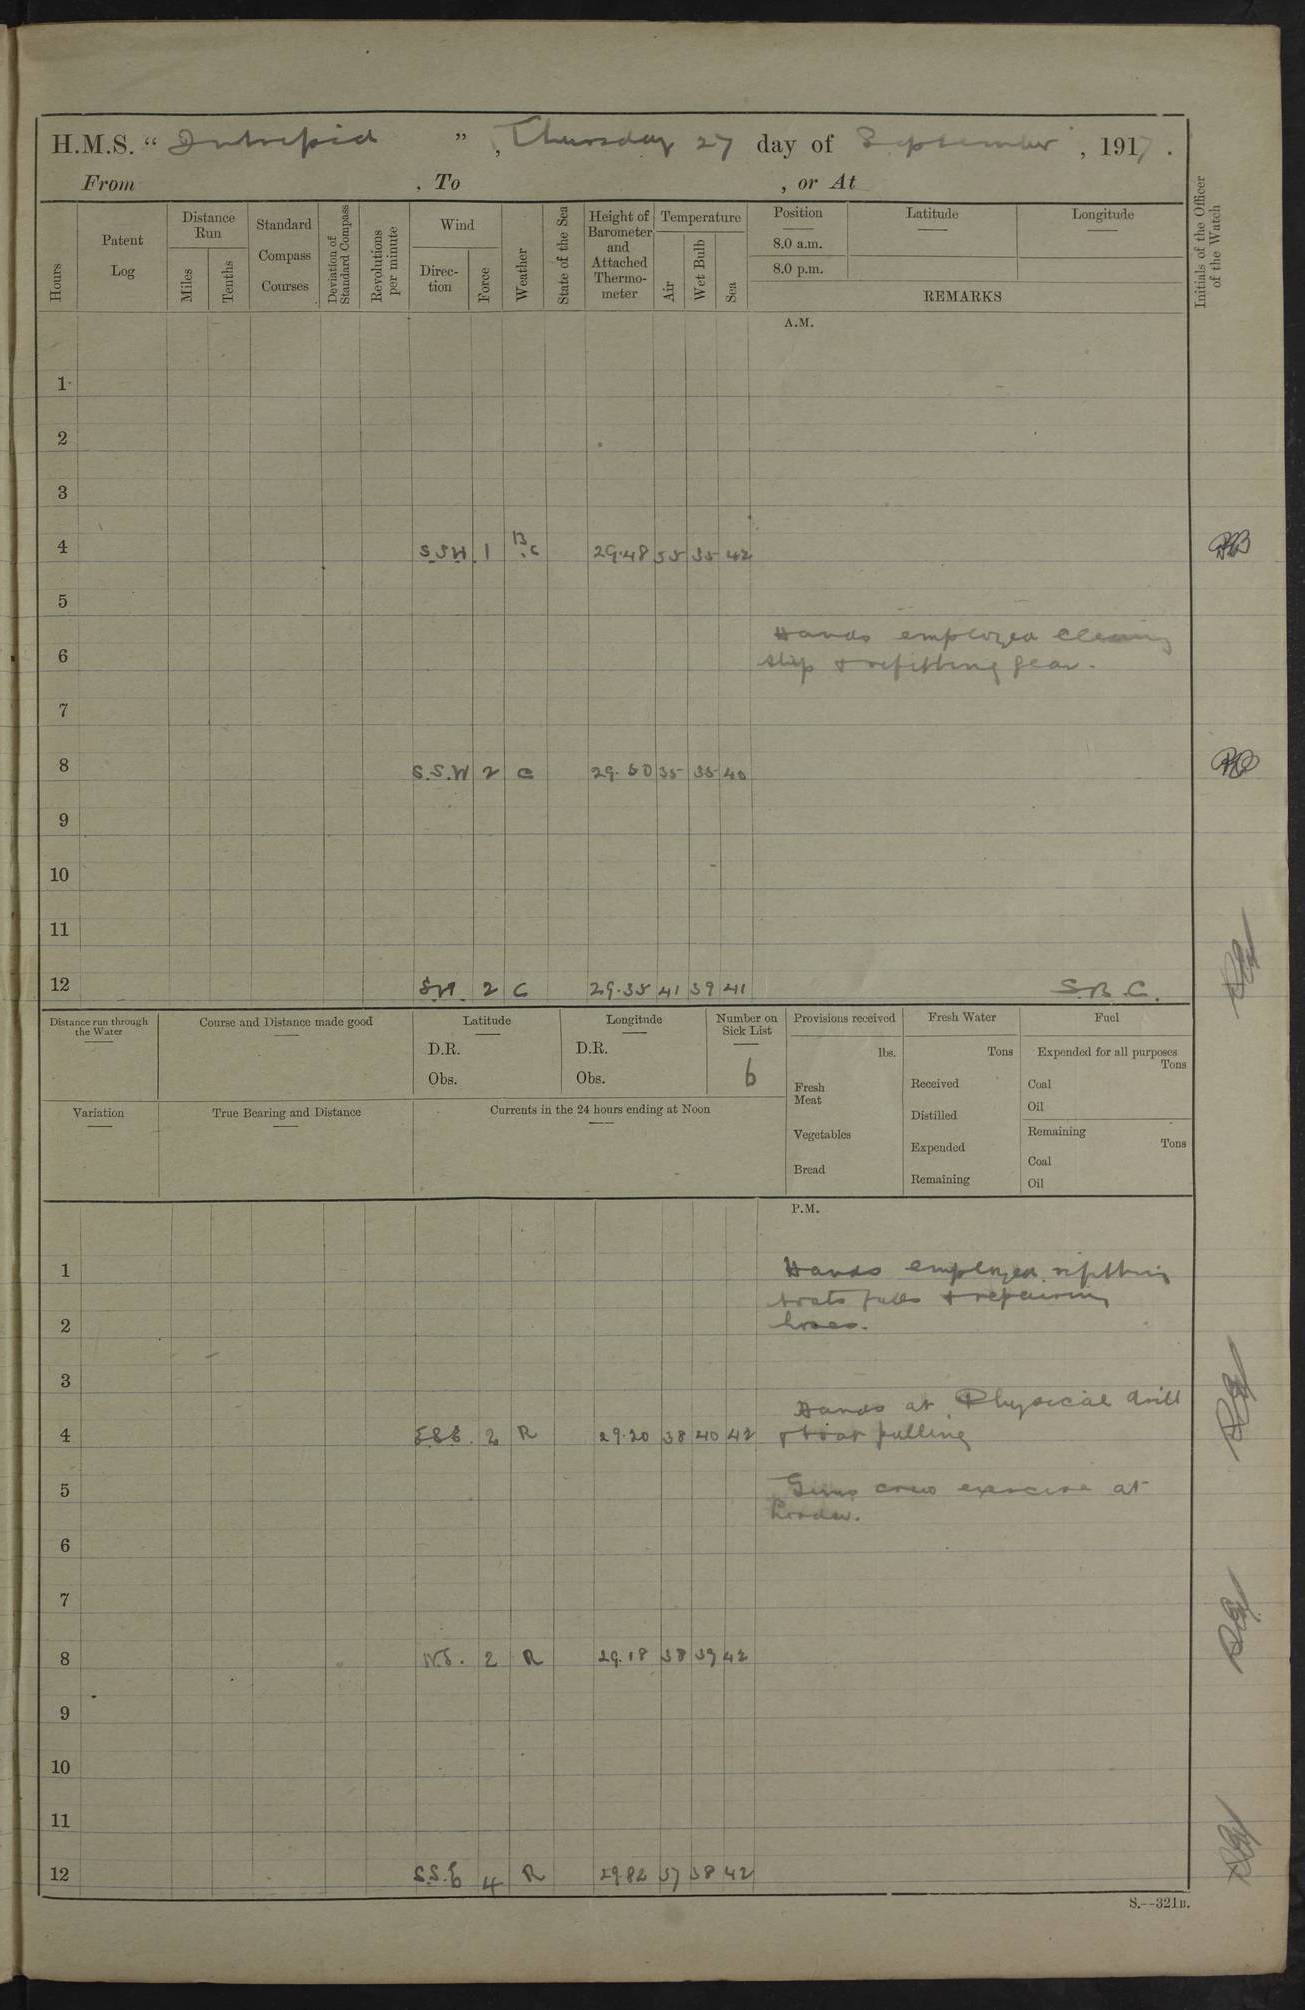 H.M.S. “ Intrepid ”, Thursday 27 day of September, 1917.
From , To , or At
Hours
Patent Log
Distance Run
Miles
Tenths
Standard Compass Courses
Deviation of Standard Compass
Revolutions per minute
Wind
Direc-tion
Force
Weather
State of the Sea
Height of Barometer and Attached Thermo-meter
Temperature
Air
Wet Bulb
Sea
Position
8.0 a.m.
8.0 p.m.
Latitude
Longitude
REMARKS
Initials of the Officer of the Watch
A.M.
1
2
3
4 S.S.W. 1 B.C 29.48 35 35 42
5
Hands employed cleaning
6
ship & refitting gear.
7
8 S.S.W 2 C 29.50 35 35 40
9
10
11
12 S.W. 2 C 29.35 41 39 41 S.B.C.
Distance run through the Water
Course and Distance made good
Latitude
D.R.
Obs.
Longitude
D.R.
Obs.
Number on Sick List
6
Provisions received
lbs.
Fresh Meat
Vegetables
Bread
Fresh Water
Tons
Received
Distilled
Expended
Remaining
Fuel
Expended for all purposes
Tons
Coal
Oil
Remaining
Tons
Coal
Oil
Variation
True Bearing and Distance
Currents in the 24 hours ending at Noon
P.M.
1 Hands employed refitting
boats falls & repairing
2 hoses.
3
Hands at Physical drill
4 E.S.E. 2 R 29.20 38 40 42 & boat pulling
5 Guns crew exercise at
loader.
6
7
8 N.E. 2 R 29.18 38 39 42
9
10
11
12 S.S.E 4 R 29.82 37 38 42
S.—321B.